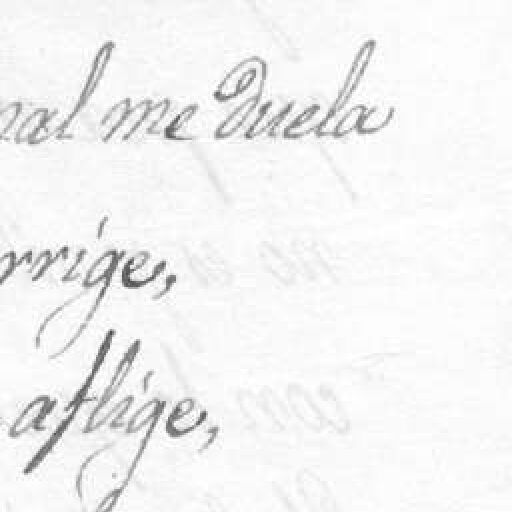 nal me duela
rrige,
aflige,